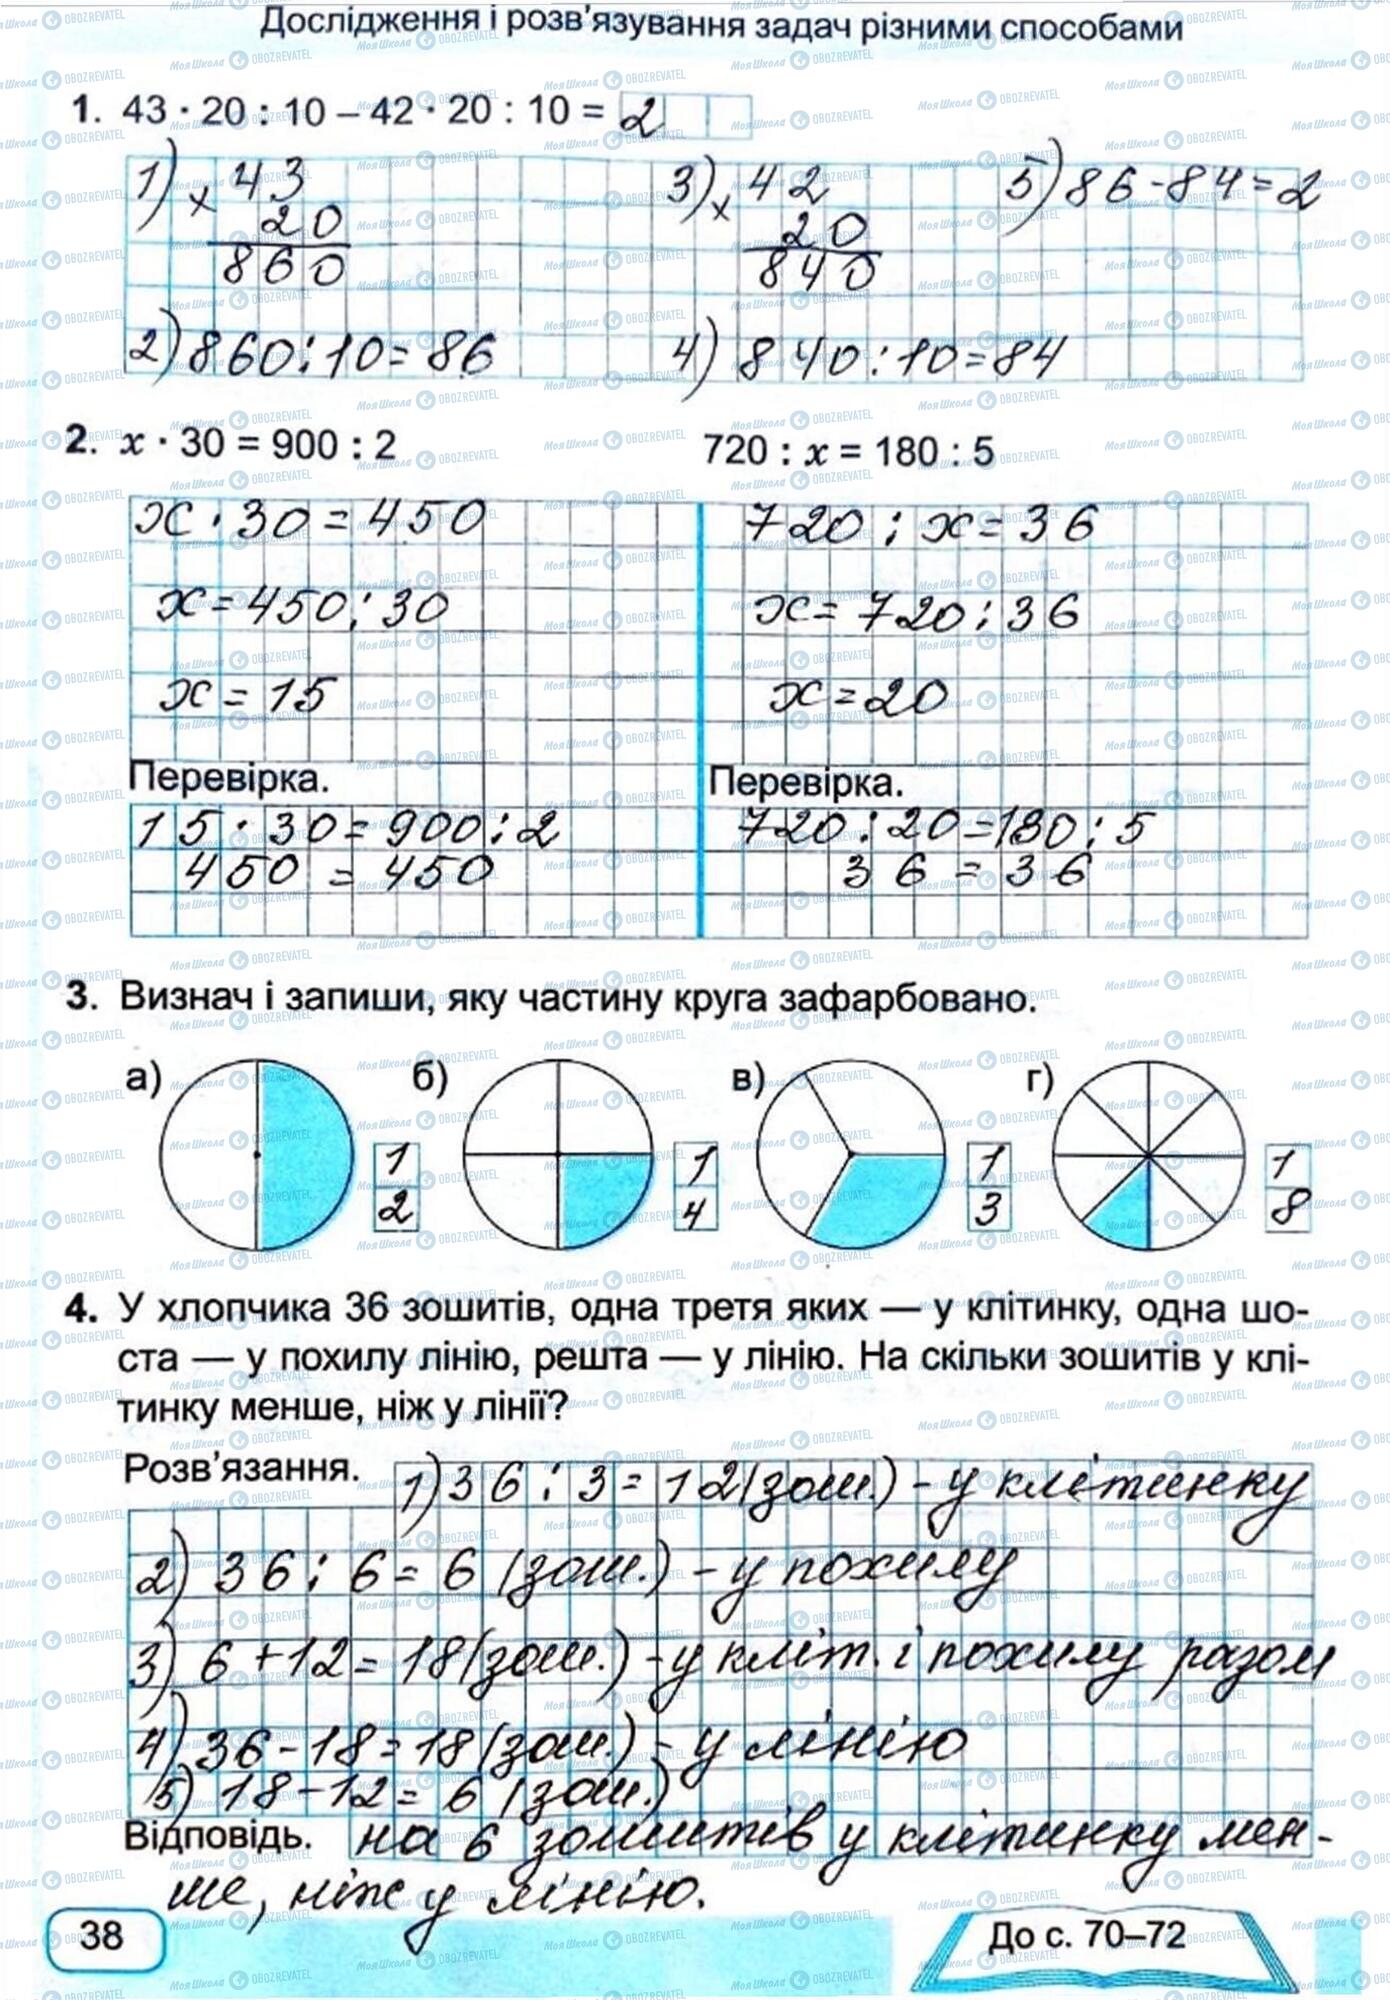 Дослідження і розв'язування задач різними способами
1. 43 · 20 : 10 – 42 · 20 : 10 = 2
1) × 43 3) × 42 5) 86 - 84 = 2
20 20
860 840
2) 860 : 10 = 86 4) 840 : 10 = 84
2. x · 30 = 900 : 2 720 : x = 180 : 5
x · 30 = 450 720 : x = 36
x = 450 : 30 x = 720 : 36
x = 15 x = 20
Перевірка. Перевірка.
15 · 30 = 900 : 2 720 : 20 = 180 : 5
450 = 450 36 = 36
3. Визнач і запиши, яку частину круга зафарбовано.
а) 1/2 б) 1/4 в) 1/3 г) 1/8
4. У хлопчика 36 зошитів, одна третя яких — у клітинку, одна шо-
ста — у похилу лінію, решта — у лінію. На скільки зошитів у клі-
тинку менше, ніж у лінії?
Розв'язання. 1) 36 : 3 = 12 (зош.) - у клітинку
2) 36 : 6 = 6 (зош.) - у похилу
3) 6 + 12 = 18 (зош.) - у кліт. і похилу разом
4) 36 - 18 = 18 (зош.) - у лінію
5) 18 - 12 = 6 (зош.)
Відповідь. на 6 зошитів у клітинку мен-
ше, ніж у лінію.
38 До с. 70–72
МояШкола OBOZREVATEL